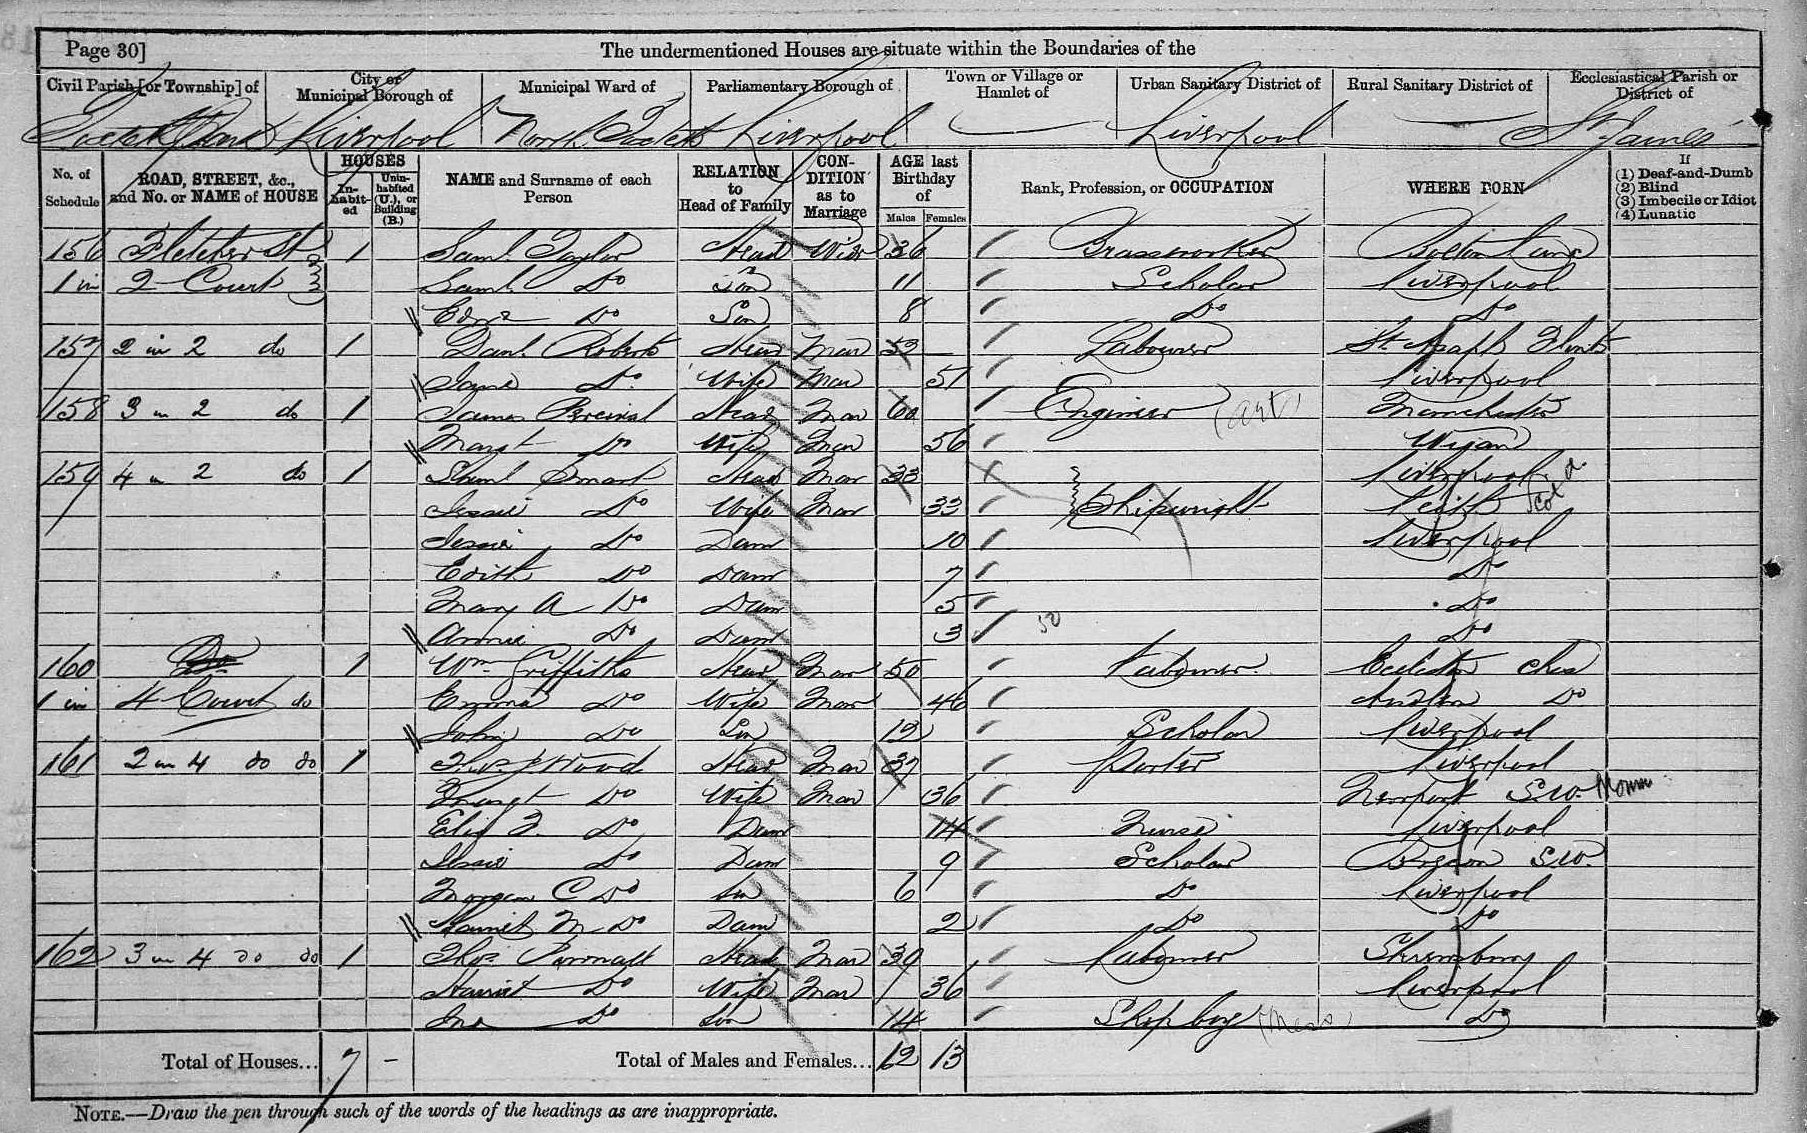 Page 30]
The undermentioned Houses are situate within the Boundaries of the
Civil Parish [or Township] of
City or Municipal Borough of
Municipal Ward of
Parliamentary Borough of
Town or Village or Hamlet of
Urban Sanitary District of
Rural Sanitary District of
Ecclesiastical Parish or District of
Toxteth Park Liverpool North Toxteth Liverpool Liverpool St James
No. of Schedule
ROAD, STREET, &c., and No. or NAME of HOUSE
HOUSES
In-habit-ed
Unin-habited (U.), or Building (B.)
NAME and Surname of each Person
RELATION to Head of Family
CON-DITION as to Marriage
AGE last Birthday of
Males Females
Rank, Profession, or OCCUPATION
WHERE BORN
If
(1) Deaf-and-Dumb
(2) Blind
(3) Imbecile or Idiot
(4) Lunatic
156 Fletcher St 1 Saml. Taylor Head Widr 36 Brassworker Bolton Lanc
1 in 2 Court Saml. Do Son 11 Scholar Liverpool
Do Son 8 Do Do
157 2 in 2 do 1 Danl. Roberts Head Mar 52 Labourer St. Asaph Flints
Jane Do. Wife Mar 51 Liverpool
158 3 in 2 do 1 James Percival Head Mar 60 Engineer (art) Manchester
Margt Do Wife Mar 56 Wigan
159 4 in 2 do 1 Smart Head Mar 33 Liverpool
Jessie Do Wife Mar 33 Shipwright Leith Scotd.
Jessie Do Daur 10 Liverpool
Edith Do Daur 7 Do
Mary A Do Daur 5 Do
Annie Do Daur 3 Do
160 Do 1 Wm Griffiths Head Mar 50 Labourer. Eccleston Ches
1 in 4 Court do Emma Do Wife Mar 46 Do
John Do Son 12 Scholar Liverpool
161 2 in 4 do do 1 Wood Head Mar 37 Porter Liverpool
Margt Do Wife Mar 36 Newport S.W. Monm
Do Daur 14 Nurse Liverpool
Jessie Do Daur 9 Scholar Brecon S.W.
Morgan C Do Son 6 Do Liverpool
Harriet M Do Daur 2 Do Do
162 3 in 4 do do 1 Thos. Head Mar 39 Labourer Shrewsbury
Harriet Do Wife Mar 36 Liverpool
Jno Do Son 14 Shop boy (Mess) Do
Total of Houses... 7 -
Total of Males and Females... 12 13
NOTE.—Draw the pen through such of the words of the headings as are inappropriate.